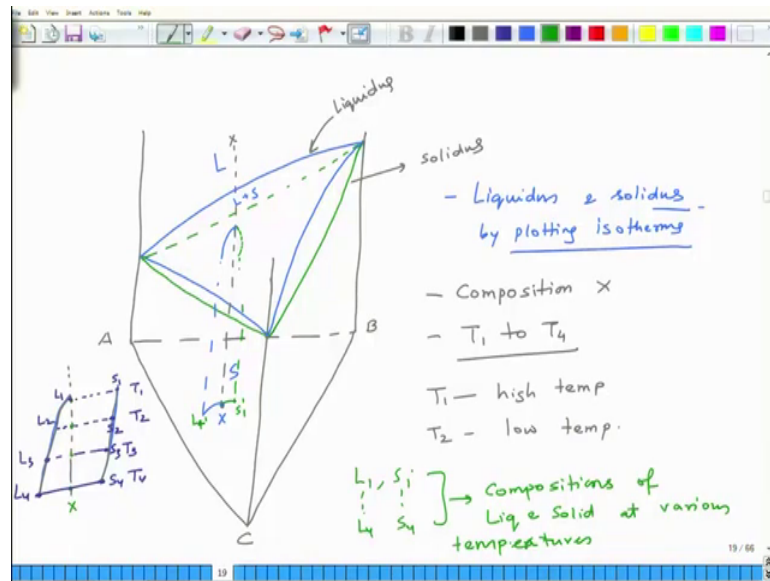 File Edit View Insert Actions Tools Help
Liquidus
x
L
solidus
L+S
- Liquidus & solidus
by plotting isotherms
- Composition X
- T1 to T4
A
B
S
L4
X
S1
T1 — high temp
T2 - low temp.
L1 S1 T1
L2 S2 T2
L3 S3 T3
L4 S4 T4
X
C
L1, S1
L4 S4
→ Compositions of
Liq & Solid at various
temperatures
19 / 66
19